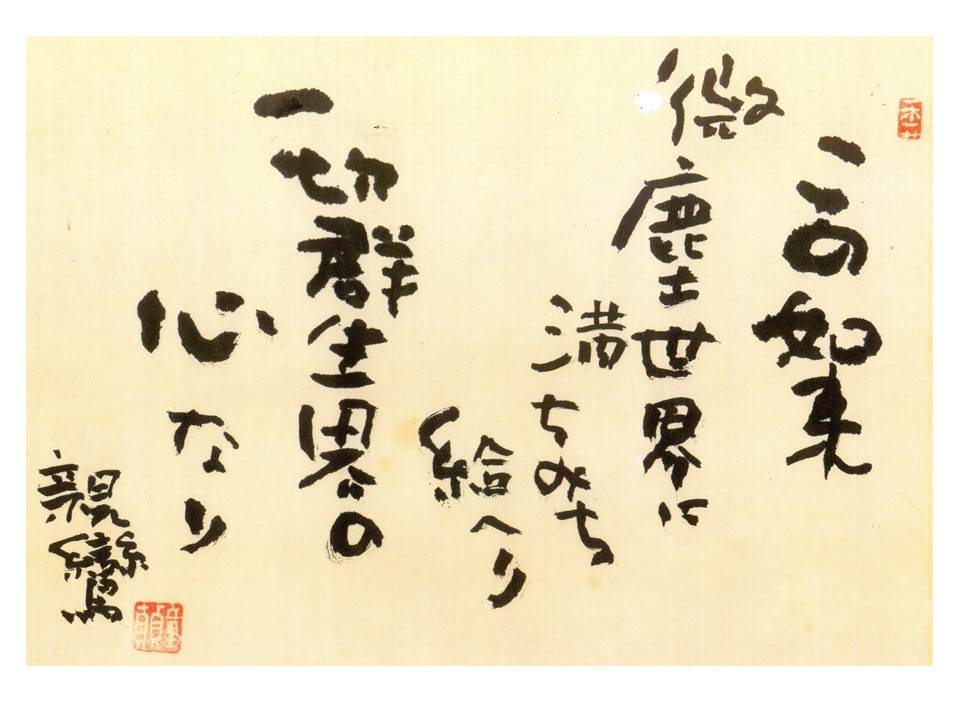 この如来
微塵世界に
満ちみち
給へり
一切群生界の
心なり
親鸞